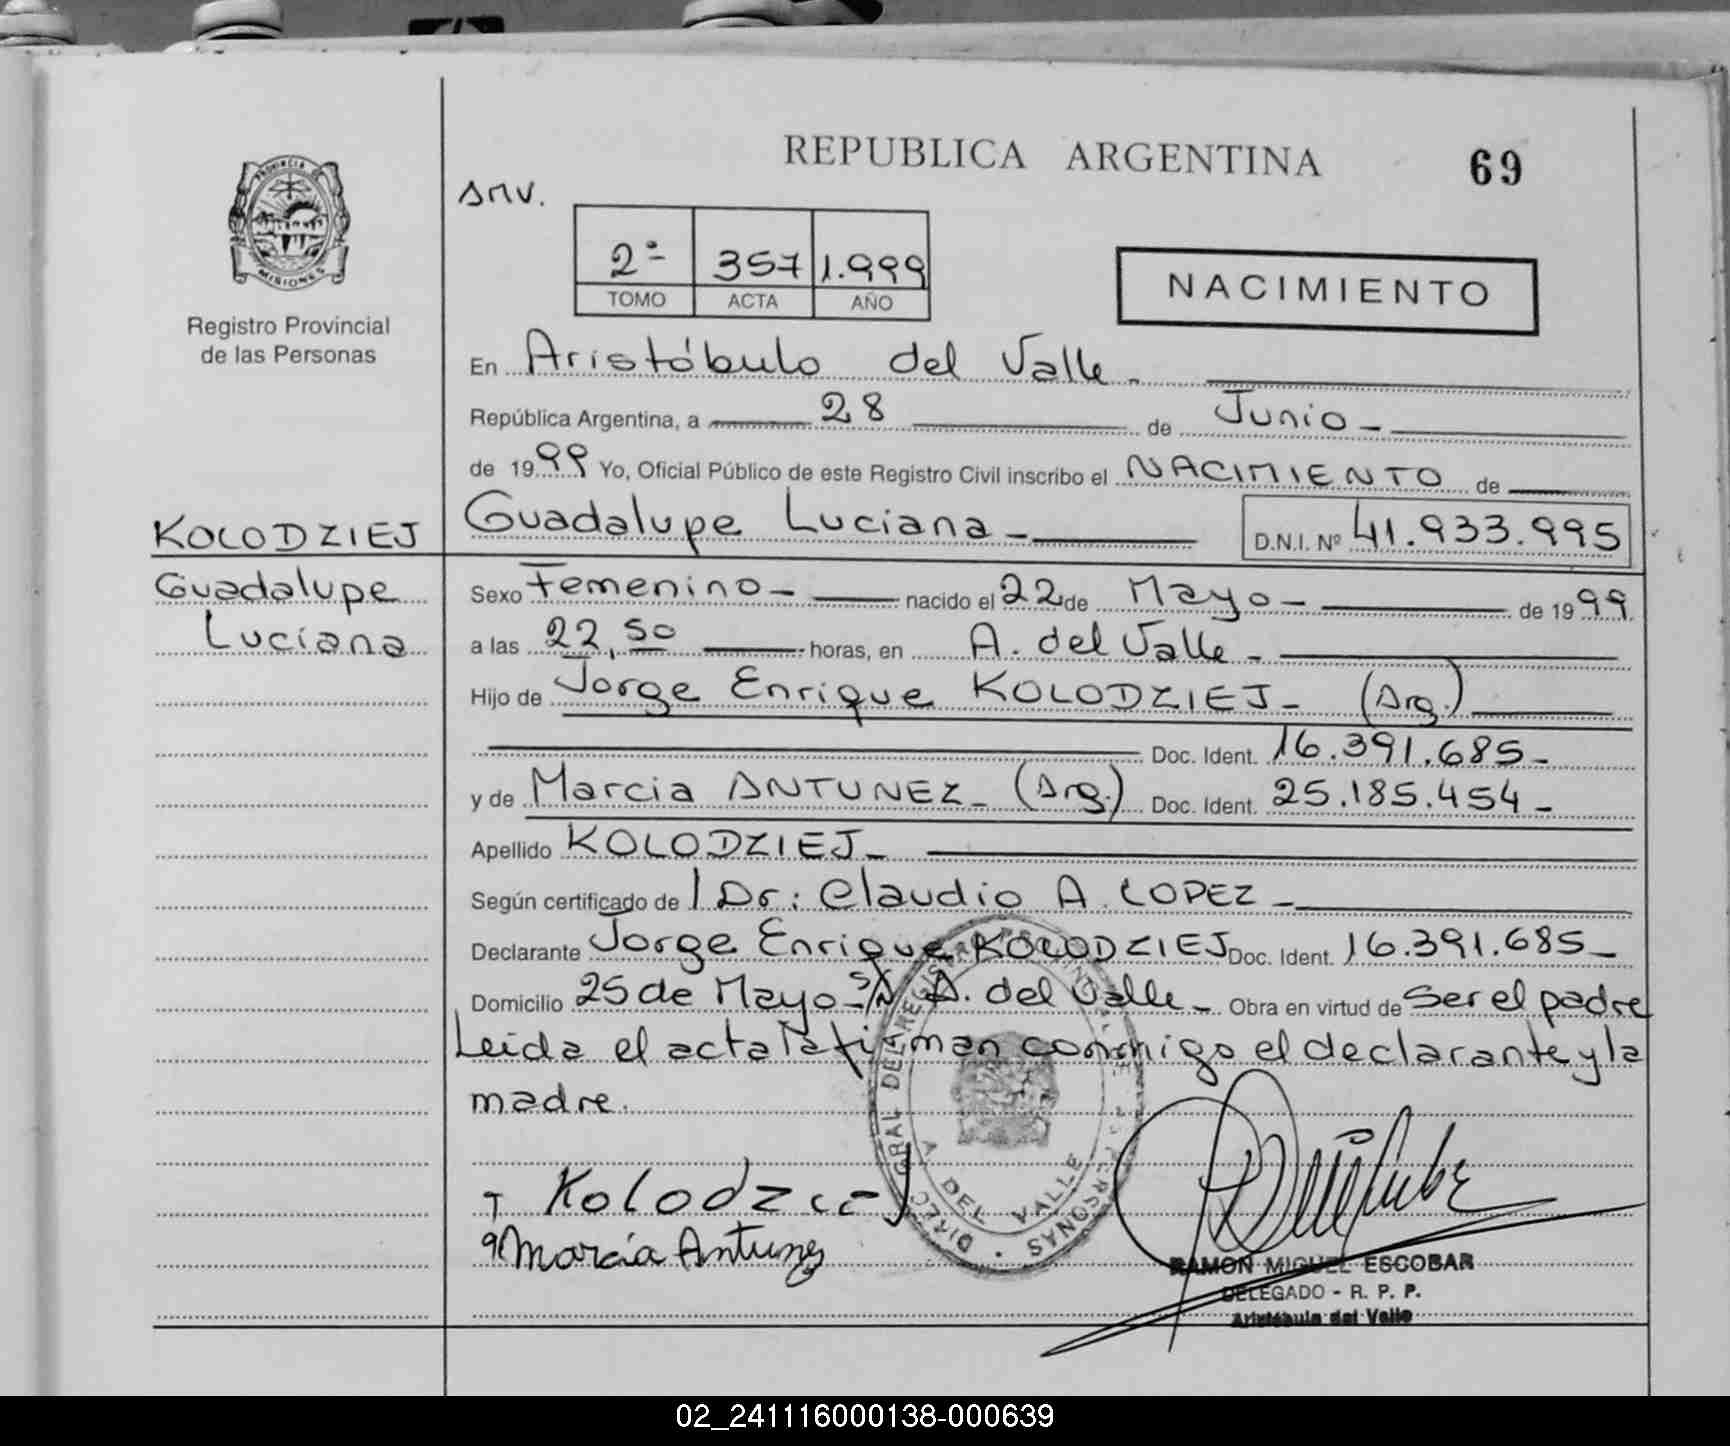 REPUBLICA ARGENTINA 69
PROVINCIA DE
MISIONES
Registro Provincial
de las Personas
2ª 357 1.999
TOMO ACTA AÑO
NACIMIENTO
En Aristóbulo del Valle -
República Argentina, a 28 de Junio -
de 1999 Yo, Oficial Público de este Registro Civil inscribo el NACIMIENTO de
KOLODZIEJ
Guadalupe
Luciana
Guadalupe Luciana - D.N.I. Nº 41.933.995
Sexo Femenino - nacido el 22 de Mayo - de 1999
a las 22,50 horas, en A. del Valle -
Hijo de Jorge Enrique KOLODZIEJ - (Arg.)
Doc. Ident. 16.391.685 -
y de Marcia ANTUNEZ - (Arg.) Doc. Ident. 25.185.454 -
Apellido KOLODZIEJ -
Según certificado de l Dr: Claudio A. LOPEZ -
Declarante Jorge Enrique KOLODZIEJ Doc. Ident. 16.391.685 -
Domicilio 25 de Mayo - s/n A. del Valle - Obra en virtud de Ser el padre
Leida el acta la firman conmigo el declarante y la
madre.
Kolodziej
Marcia Antunez
A DEL VALLE
RAMON MIGUEL ESCOBAR
DELEGADO - R. P. P.
Aristóbulo del Valle
02_241116000138-000639